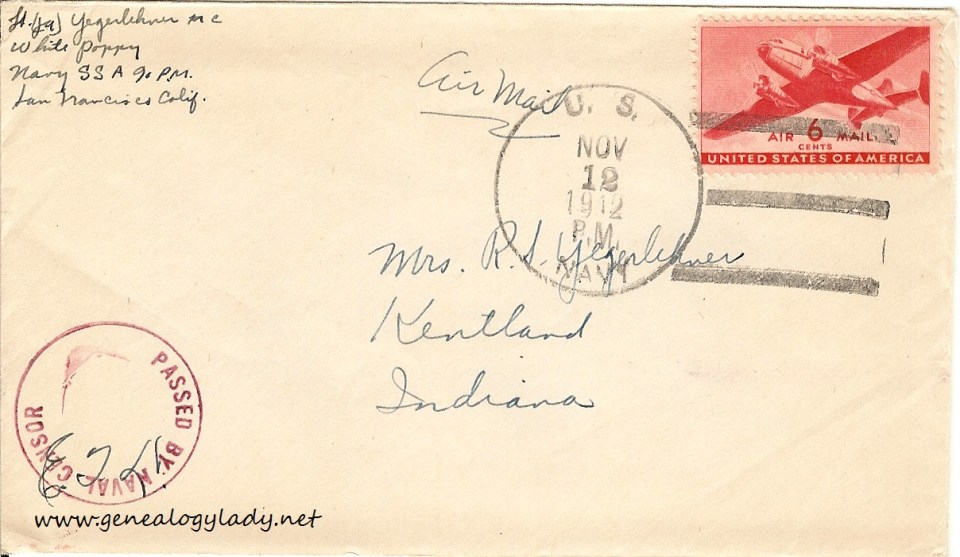 Lt. (jg) Yegerlehner M C
White Poppy
Navy SS A 90 P.M.
San Francisco Calif.
Air Mail
AIR 6 MAIL
CENTS
UNITED STATES OF AMERICA
U. S.
NOV
12
1942
P.M.
NAVY
Mrs. R. S. Yegerlehner
Kentland
Indiana
PASSED BY NAVAL CENSOR
www.genealogylady.net